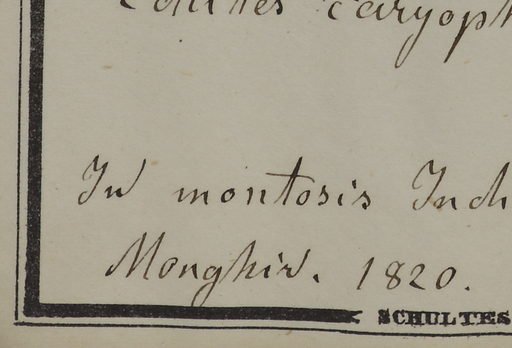 In montosis Ind
Monghir. 1820.
SCHULTES